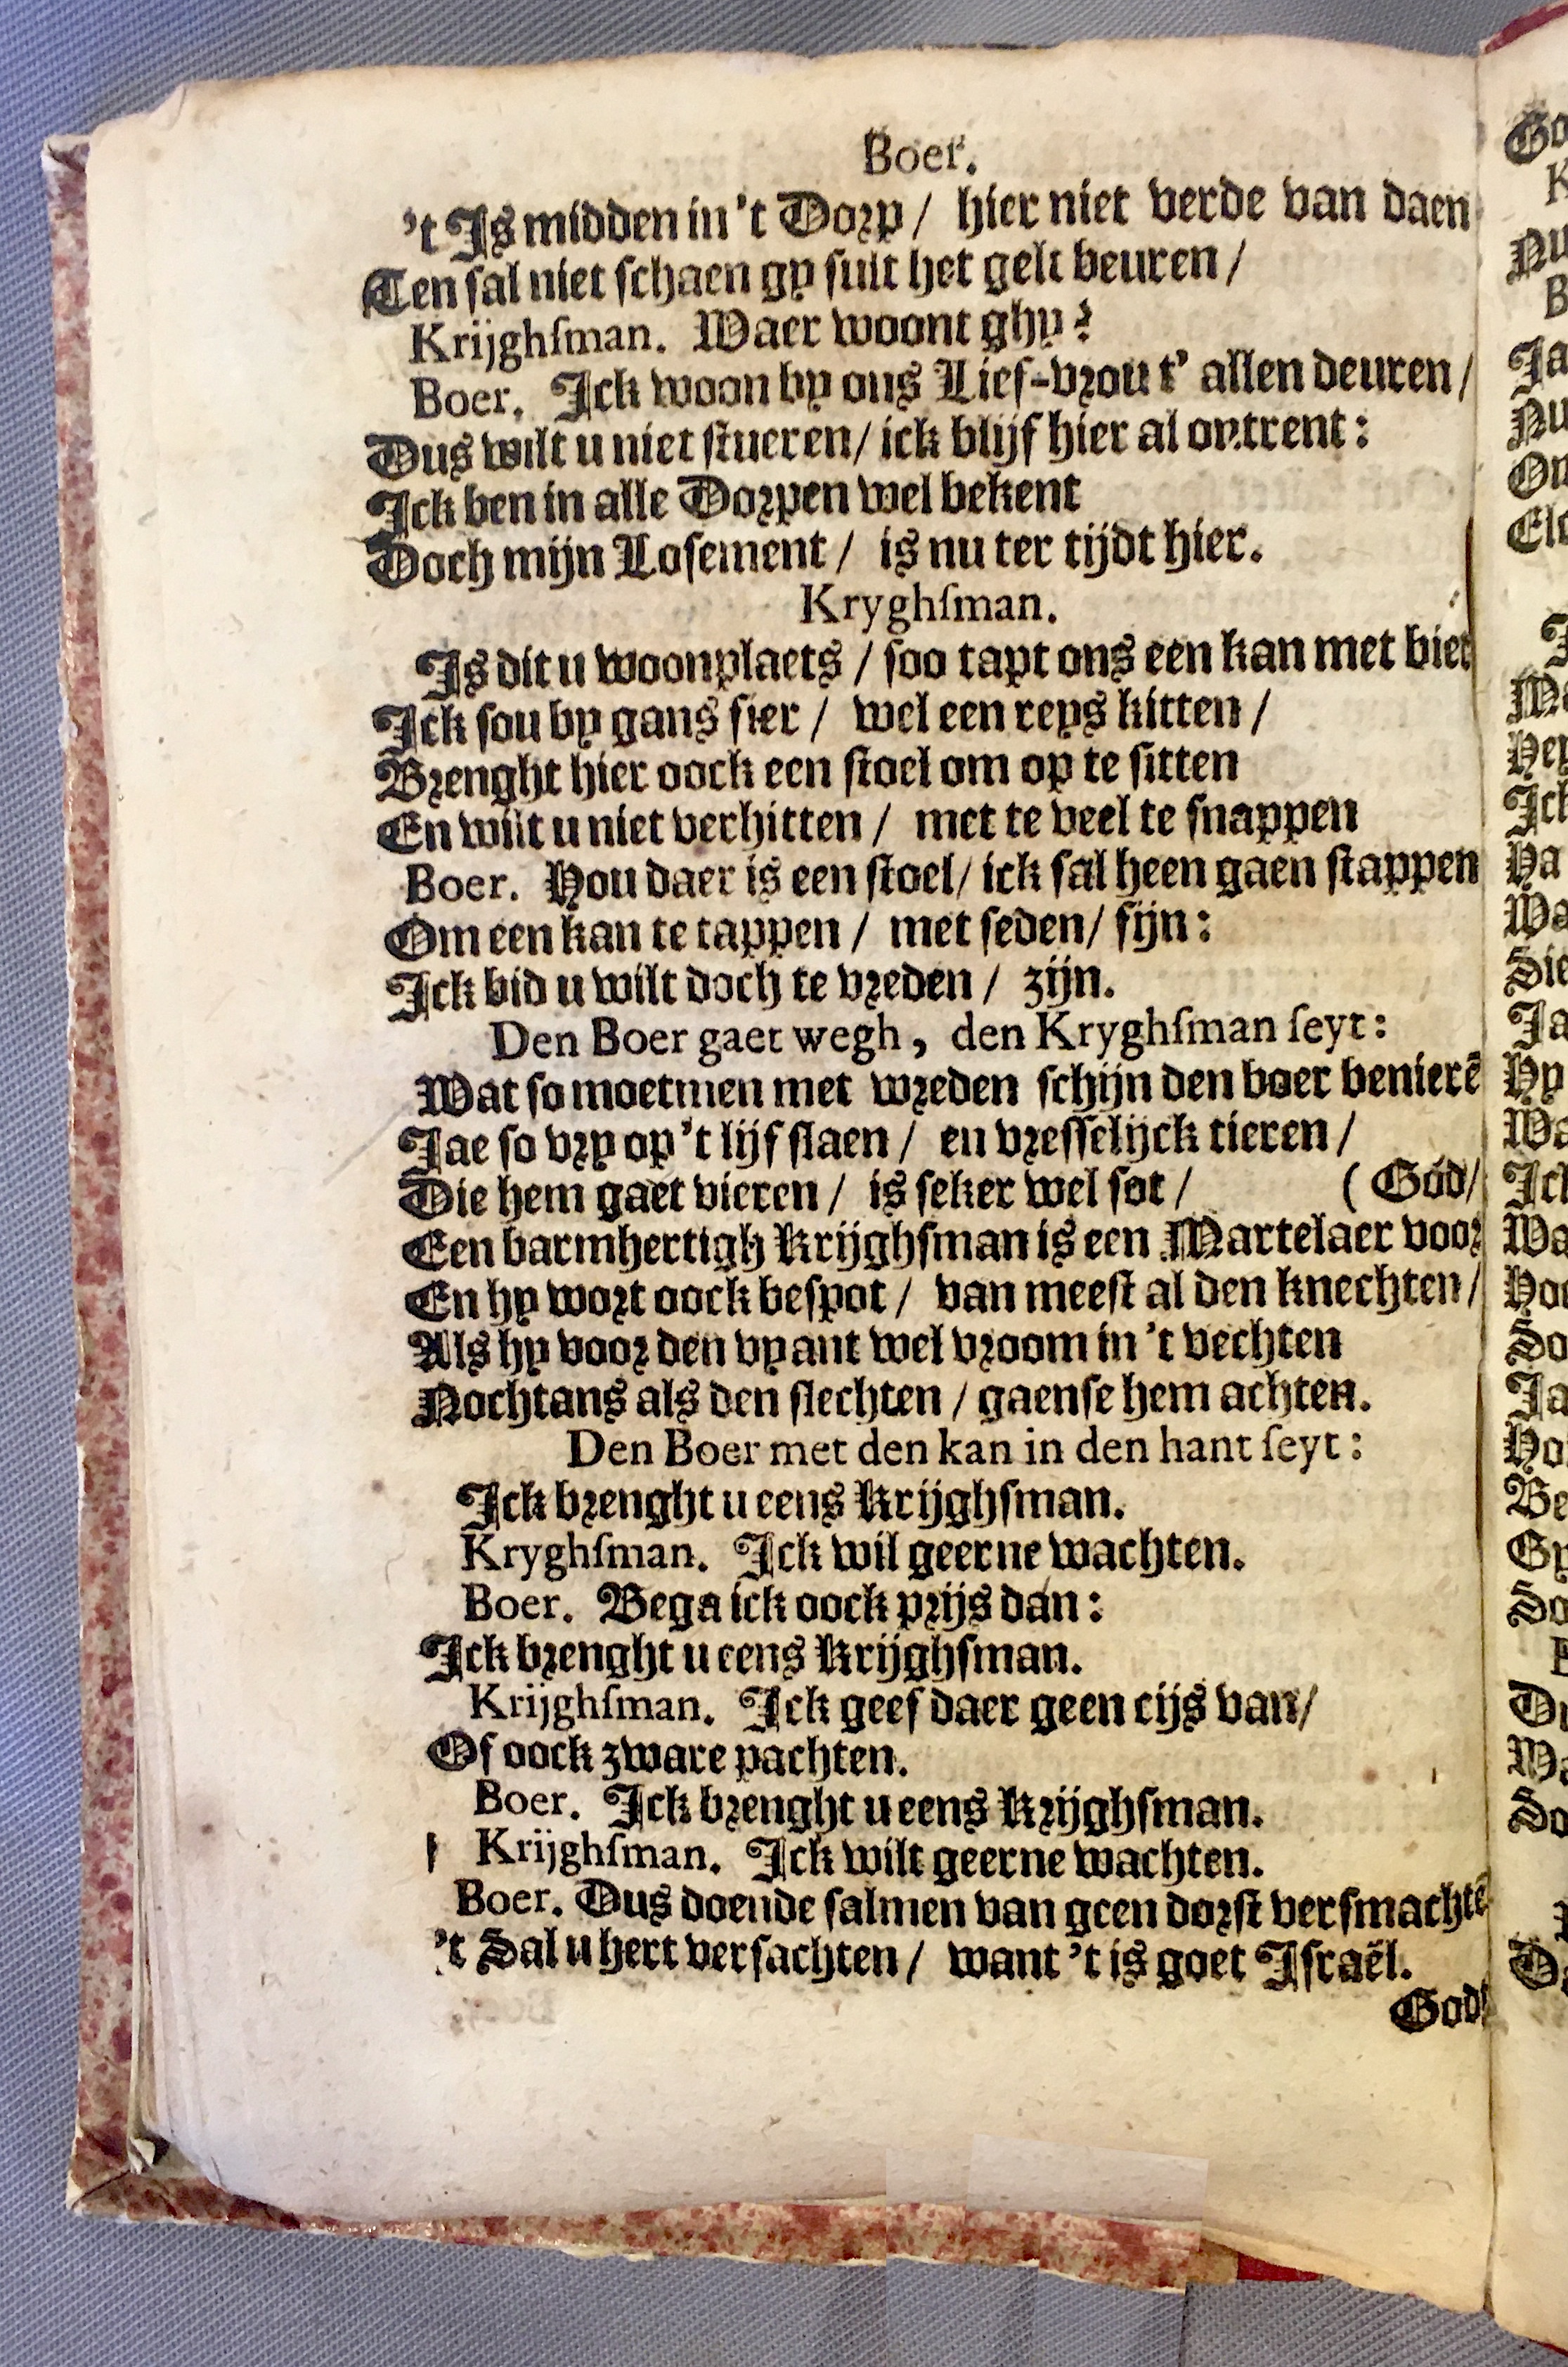 Boer.
't Is midden in 't Dorp / hier niet verde van daen
Ten sal niet schaen gy sult het gelt beuren /
Krijghſman. Waer woont ghy?
Boer. Ick woon by ons Lief-vrou t' allen deuren /
Dus wilt u niet ſtueren / ick blijf hier al ontrent:
Ick ben in alle Dorpen wel bekent
Doch mijn Loſement / is nu ter tijdt hier.
Kryghſman.
Is dit u woonplaets / ſoo tapt ons een kan met bier
Ick ſou by gans ſier / wel een reys kitten /
Brenght hier oock een ſtoel om op te ſitten
En wilt u niet verhitten / met te veel te ſnappen
Boer. Hou daer is een ſtoel / ick ſal heen gaen ſtappen
Om een kan te tappen / met ſeden / ſijn:
Ick bid u wilt doch te vreden / zijn.
Den Boer gaet wegh, den Kryghſman ſeyt:
Wat ſo moetmen met wreden ſchijn den boer benierē
Jae ſo vry op 't lijf ſlaen / en vreſſelijck tieren /
Die hem gaet vieren / is ſeker wel ſot / ( God /
Een barmhertigh Krijghſman is een Martelaer voor
En hy wort oock beſpot / van meeſt al den knechten /
Als hy voor den vyant wel vroom in 't vechten
Nochtans als den ſlechten / gaenſe hem achten.
Den Boer met den kan in den hant ſeyt:
Ick brenght u eens Krijghſman.
Kryghſman. Ick wil geerne wachten.
Boer. Bega ick oock prijs dan:
Ick brenght u eens Krijghſman.
Krijghſman. Ick geef daer geen cijs van /
Of oock zware pachten.
Boer. Ick brenght u eens Krijghſman.
Krijghſman. Ick wilt geerne wachten.
Boer. Dus doende ſalmen van geen dorſt verſmachtē
't Sal u hert verſachten / want 't is goet Iſraël.
God!